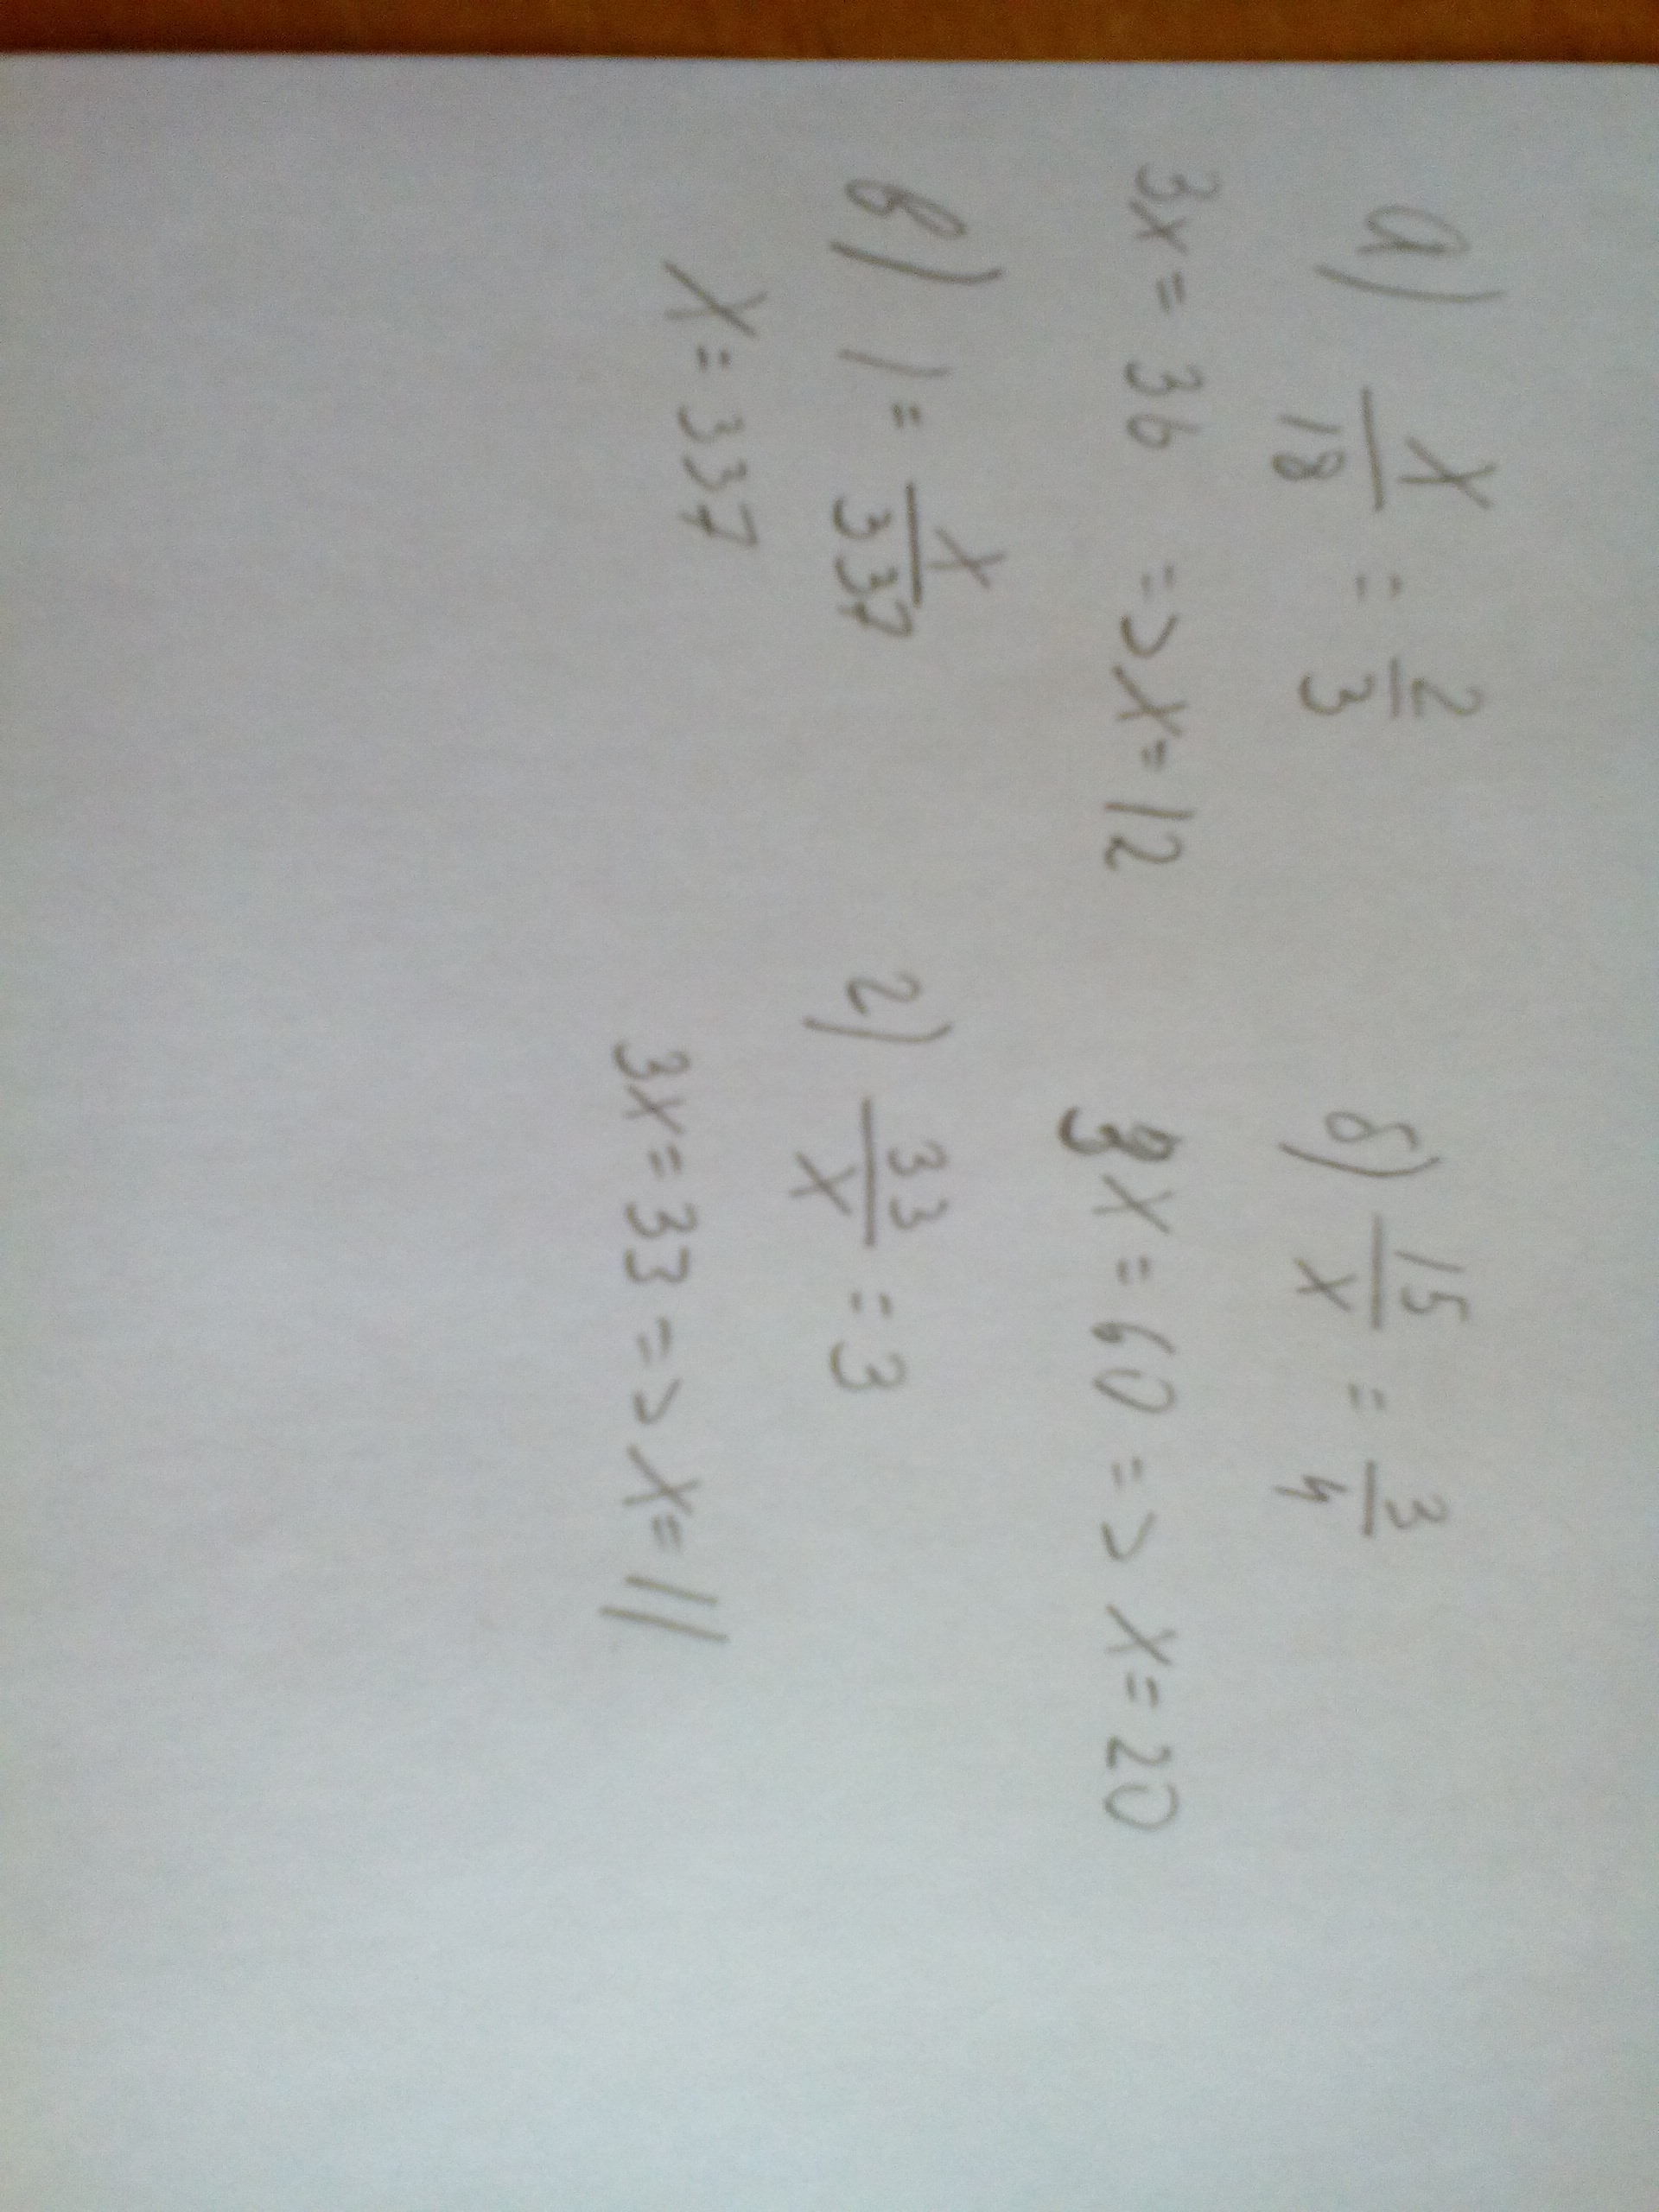 а) x/18 = 2/3
3x = 36 => x = 12
б) 15/x = 3/4
3x = 60 => x = 20
в) 1 = x/337
x = 337
г) 33/x = 3
3x = 33 => x = 11